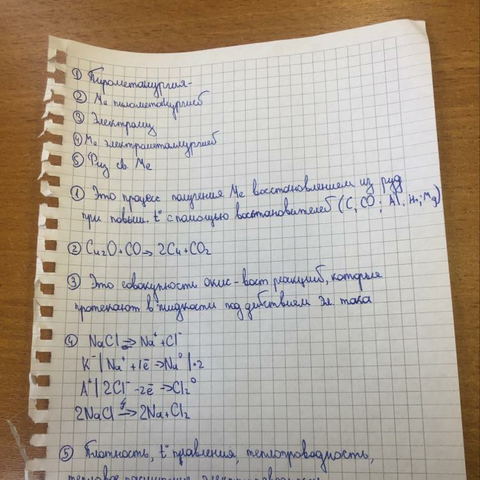 ① Пирометалургия-
② Ме пилометалургией
③ Электролиз
④ Ме электрометаллургией
⑤ Физ св. Ме
① Это процесс получения Ме восстановлением из руд
при повыш. t° с помощью восстановителей (C, CO; Al, H₂; Mg)
② Cu₂O+CO→2Cu+CO₂
③ Это совокупность окис-восст реакций, которые
протекают в жидкости под действием эл тока
④ NaCl⇄Na⁺+Cl⁻
K⁻| Na⁺+1ē→Na⁰|·2
A⁺| 2Cl⁻-2ē→Cl₂⁰
2NaCl→2Na+Cl₂
⑤ Плотность, t° правления, теплопроводность,
тепловое расширение,